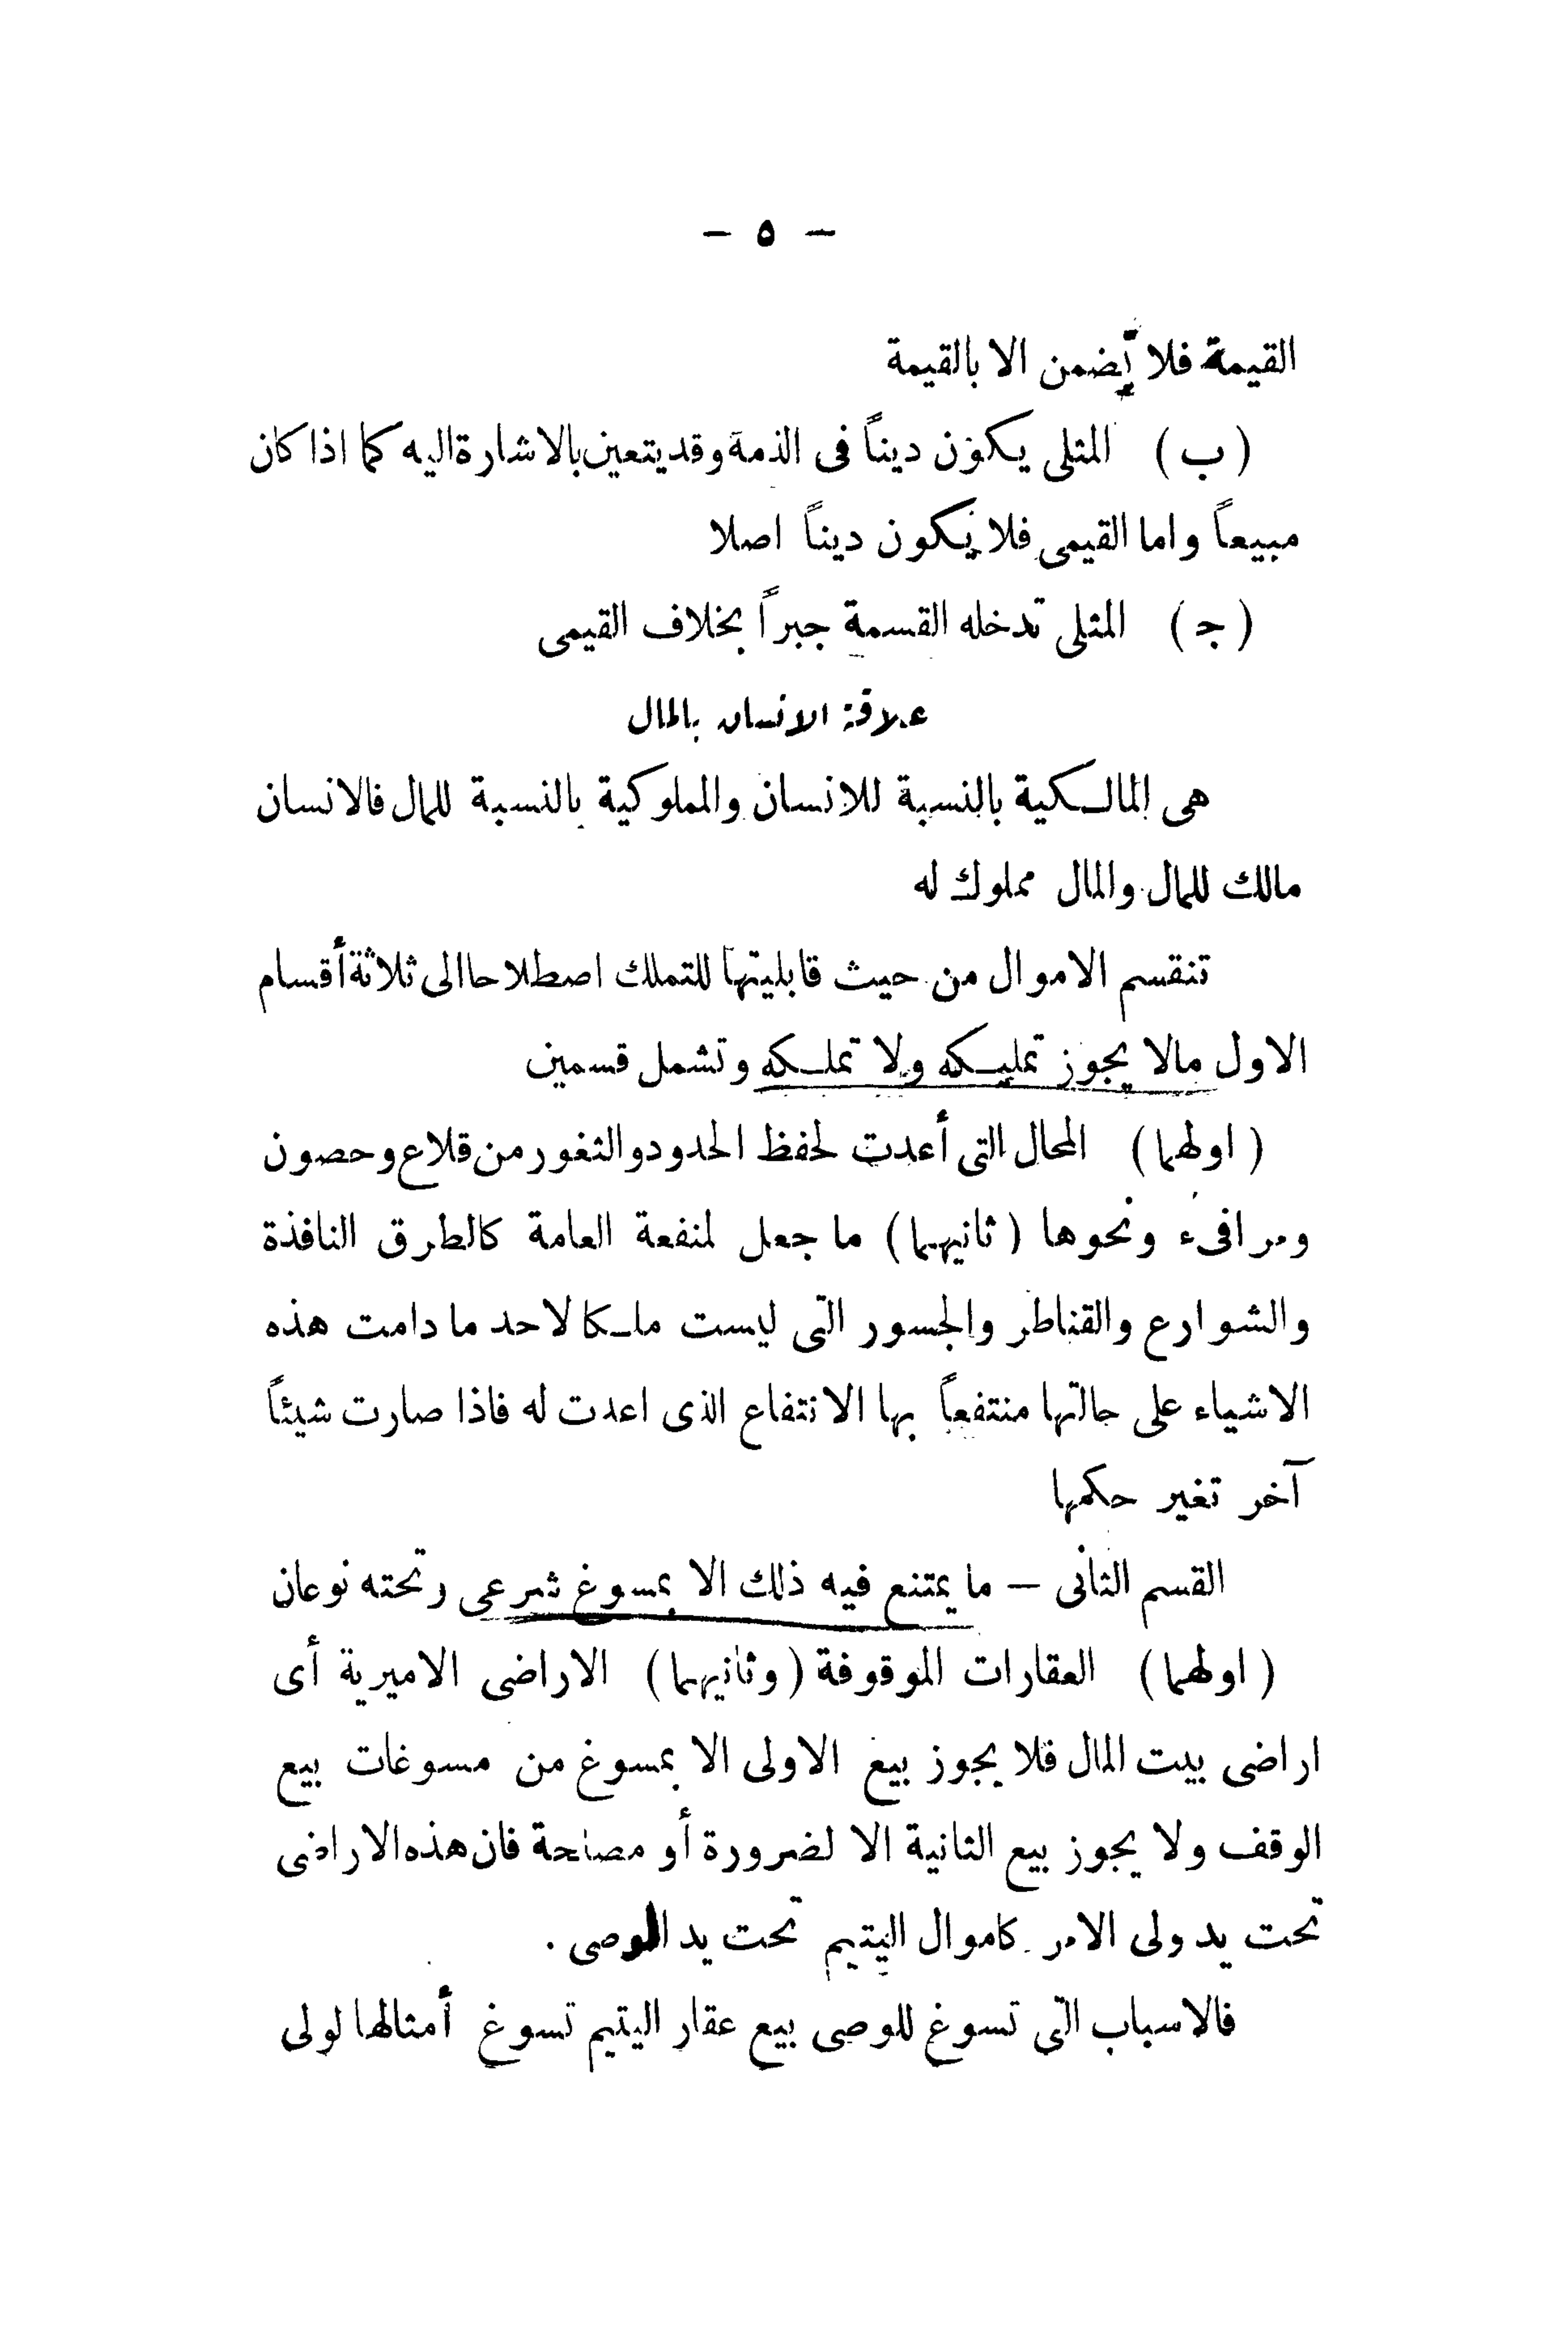 — ٥ —
القيمة فلا يضمن الا بالقيمة
(ب) المثلى يكون ديناً فى الذمة وقديتعين بالاشارة اليه كما اذا كان
مبيعاً واما القيمى فلا يكون ديناً اصلا
(ج) المثلى تدخله القسمة جبراً بخلاف القيمى
علاقة الانسان بالمال
هى المالكية بالنسبة للانسان والمملوكية بالنسبة للمال فالانسان
مالك للمال والمال مملوك له
تنقسم الاموال من حيث قابليتها للتملك اصطلاحا الى ثلاثة أقسام
الاول مالا يجوز تمليكه ولا تملكه وتشمل قسمين
(اولهما) المحال التى أعدت لحفظ الحدود والثغور من قلاع وحصون
ومرافىء ونحوها (ثانيهما) ما جعل لمنفعة العامة كالطرق النافذة
والشوارع والقناطر والجسور التى ليست ملكا لاحد ما دامت هذه
الاشياء على حالتها منتفعاً بها الانتفاع الذى اعدت له فاذا صارت شيئاً
آخر تغير حكمها
القسم الثانى — ما يمتنع فيه ذلك الا بمسوغ شرعى وتحته نوعان
(اولهما) العقارات الموقوفة (وثانيهما) الاراضى الاميرية أى
اراضى بيت المال فلا يجوز بيع الاولى الا بمسوغ من مسوغات بيع
الوقف ولا يجوز بيع الثانية الا لضرورة أو مصلحة فان هذه الاراضى
تحت يد ولى الامر كاموال اليتيم تحت يد الوصى .
فالاسباب التى تسوغ للوصى بيع عقار اليتيم تسوغ أمثالها لولى